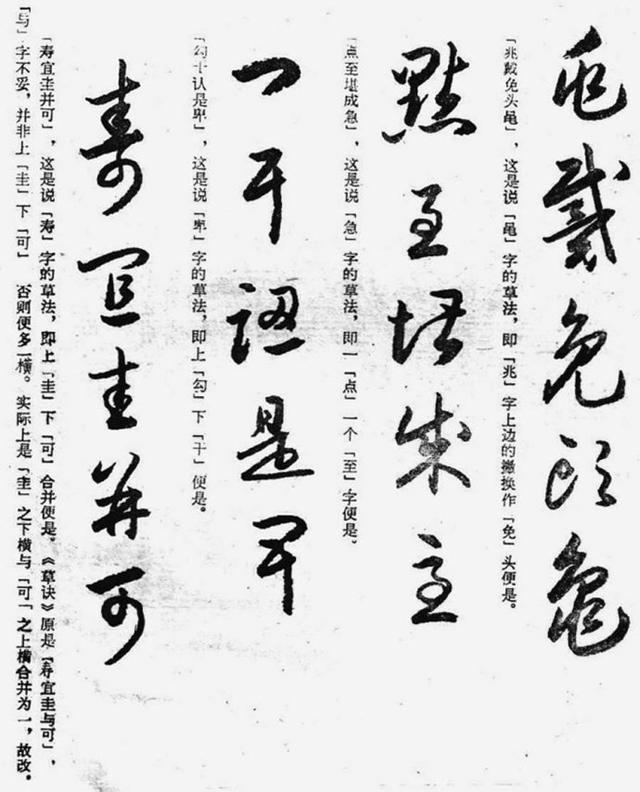 兆戴免頭龜
「兆戴免头亀」，这是说「亀」字的草法，即「兆」字上边的撇换作「免」头便是。
點至堪成急
「点至堪成急」，这是说「急」字的草法，即一「点」一个「至」字便是。
勾十認是卑
「勾十认是卑」，这是说「卑」字的草法，即上「勾」下「十」便是。
壽宜圭并可
「寿宜圭并可」，这是说「寿」字的草法，即上「圭」下「可」合并便是。《草诀》原是「寿宜圭与可」，
「与」字不妥，并非上「圭」下「可」 否则便多一横。实际上是「圭」之下横与「可「之上横合并为一，故改。